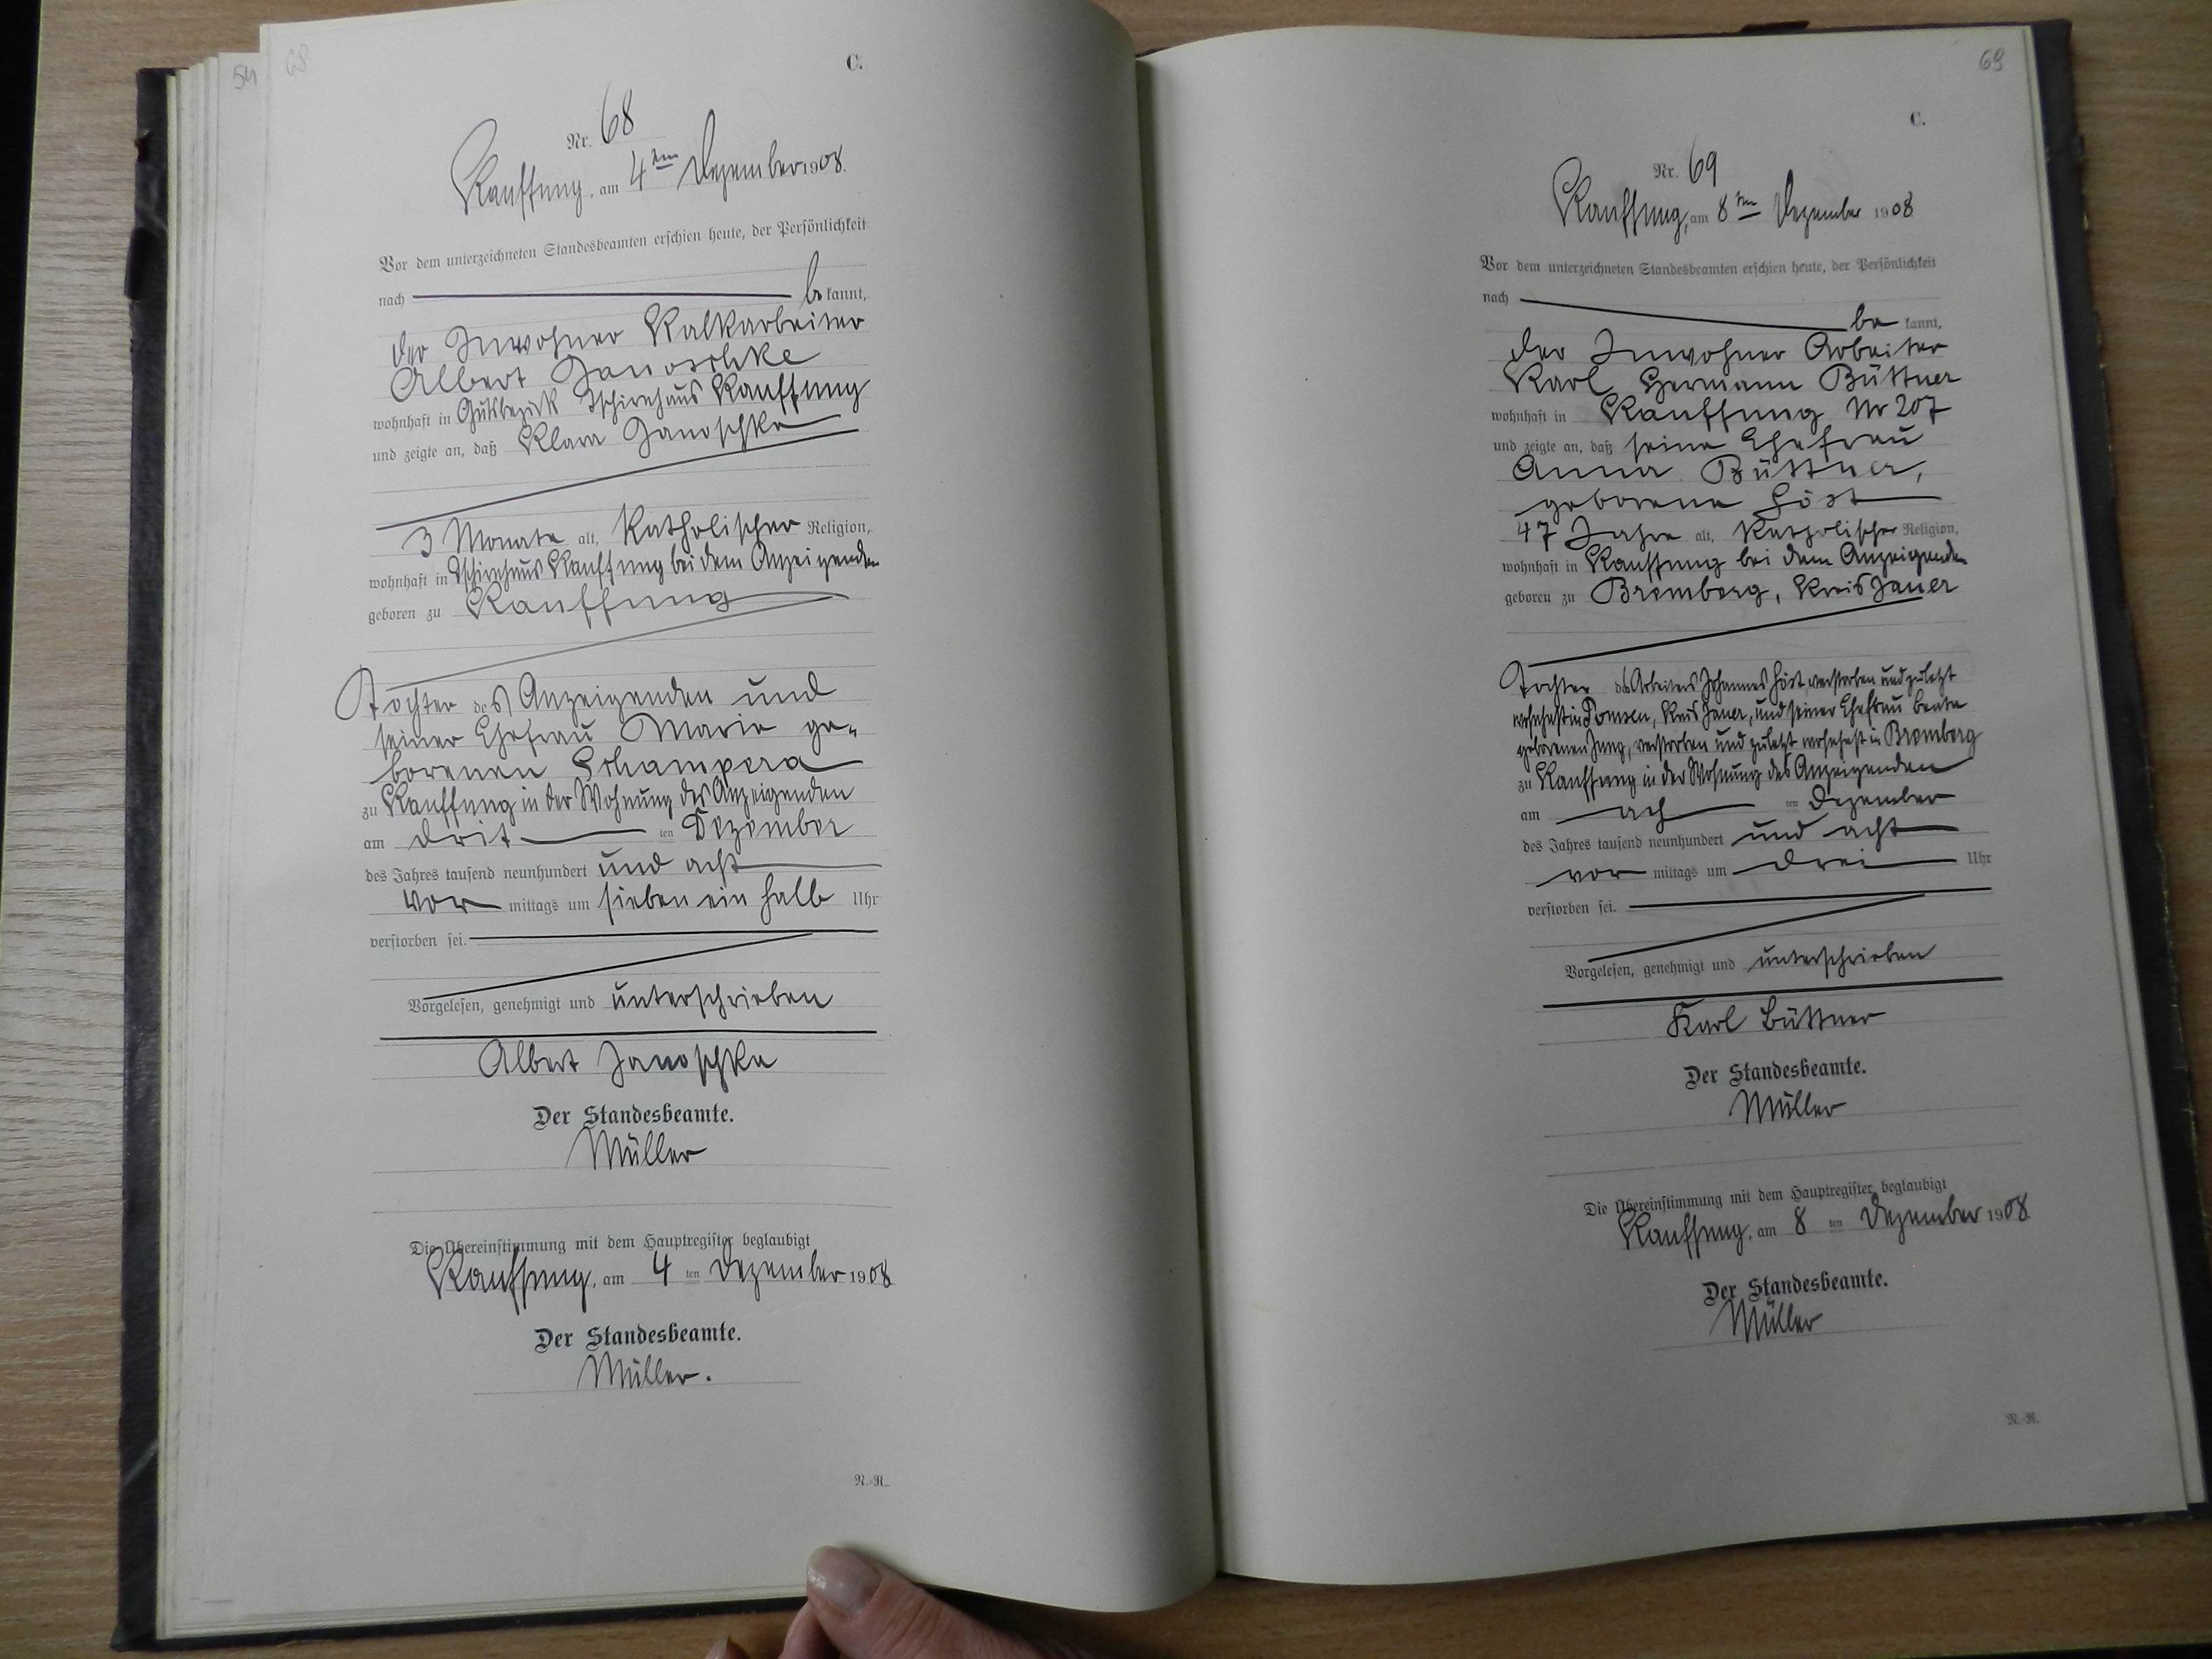 54 68
C.
Nr. 68
Kauffung, am 4ten Dezember 1908.
Vor dem unterzeichneten Standesbeamten erschien heute, der Persönlichkeit
nach be kannt,
der Inwohner Kalkarbeiter
Albert Janoschke
wohnhaft in Gutsbezirk Tschirnhaus Kauffung
und zeigte an, daß Klara Janoschke
3 Monate alt, katholischer Religion,
wohnhaft in Tschirnhaus Kauffung bei dem Anzeigenden
geboren zu Kauffung
Tochter des Anzeigenden und
seiner Ehefrau Marie ge-
borenen Schampera
zu Kauffung in der Wohnung des Anzeigenden
am drit ten Dezember
des Jahres tausend neunhundert und acht
vor mittags um sieben ein halb Uhr
verstorben sei.
Vorgelesen, genehmigt und unterschrieben
Albert Janoschke
Der Standesbeamte.
Müller
Die Übereinstimmung mit dem Hauptregister beglaubigt
Kauffung, am 4 ten Dezember 1908
Der Standesbeamte.
Müller.
N.-R.
69
C.
Nr. 69
Kauffung, am 8ten Dezember 1908
Vor dem unterzeichneten Standesbeamten erschien heute, der Persönlichkeit
nach be kannt,
der Inwohner Arbeiter
Karl Hermann Büttner
wohnhaft in Kauffung Nr 207
und zeigte an, daß seine Ehefrau
Anna Büttner,
geborene
47 Jahre alt, katholischer Religion,
wohnhaft in Kauffung bei dem Anzeigenden
geboren zu Bremberg, Kreis Jauer
Tochter des Arbeiters Johannes verstorben und zuletzt
wohnhaft in Kreis Jauer, und seiner Ehefrau Beate
geborenen Jung, verstorben und zuletzt wohnhaft in Bremberg
zu Kauffung in der Wohnung des Anzeigenden
am ach ten Dezember
des Jahres tausend neunhundert und acht
vor mittags um drei Uhr
verstorben sei.
Vorgelesen, genehmigt und unterschrieben
Karl Büttner
Der Standesbeamte.
Müller
Die Übereinstimmung mit dem Hauptregister beglaubigt
Kauffung, am 8 ten Dezember 1908.
Der Standesbeamte.
Müller
N.-R.